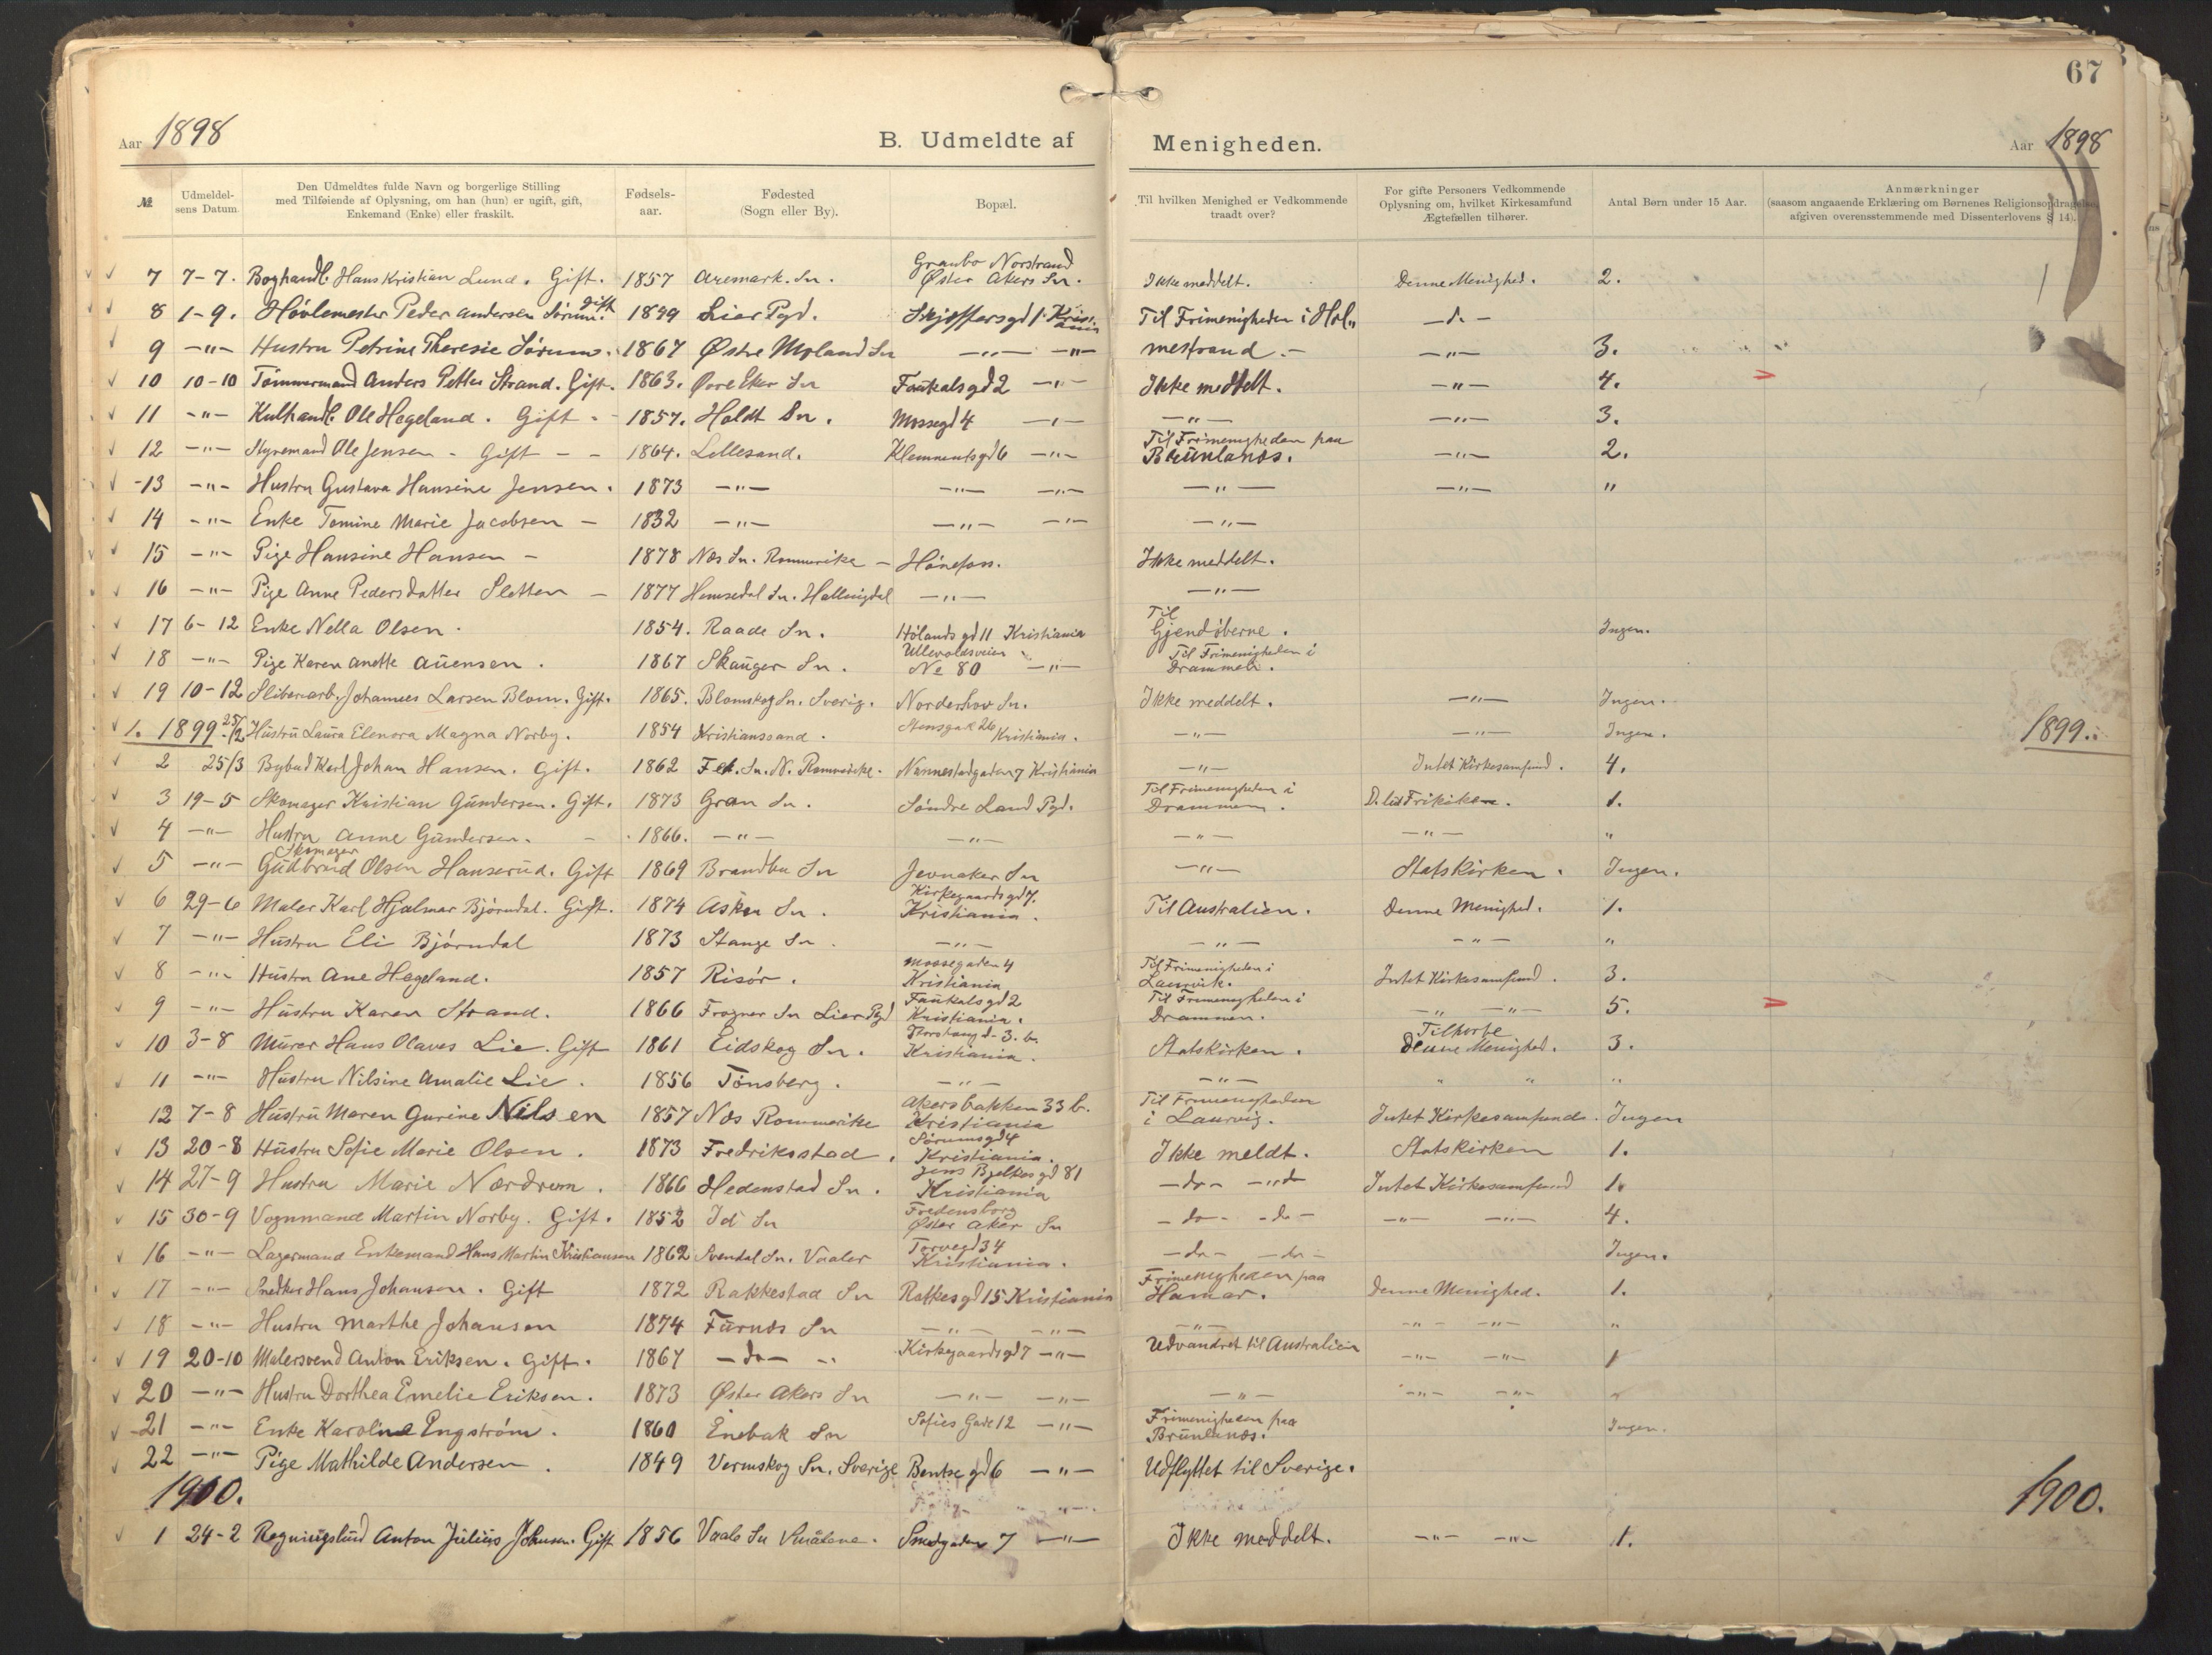 67
Aar 1898 B. Udmeldte af Menigheden. Aar 1898
№ Udmeldelsens Datum. Den Udmeldtes fulde Navn og borgerlige Stilling med Tilføiende af Oplysning, om han (hun) er ugift, gift, Enkemand (Enke) eller fraskilt. Fødselsaar. Fødested (Sogn eller By). Bopæl. Til hvilken Menighed er Vedkommende traadt over? For gifte Personers Vedkommende Oplysning om, hvilket Kirkesamfund Ægtefællen tilhører. Antal Børn under 15 Aar. Anmærkninger (saasom angaaende Erklæring om Børnenes Religionsopdragelse, afgiven overensstemmende med Dissenterlovens § 14).
7 7-7. Boghandl. Hans Kristian Lund. Gift. 1857 Aremark. Sn. Granbo Norstrand Øster Akers Sn. Ikke meddelt. Denne Menighed. 2.
8 1-9. Høvlemester Peder Andersen Sørum. Gift 1899 Lier Pgd. 1. Kristiania Til Frimenigheden i Hol„ -d. -
9 -"- Hustru Petrine Theresie Sørum. 1867 Østre Moland Sn -"- -"- mestrand. - -"- 3.
10 10-10 Tømmermand Anders Petter Strand. Gift. 1863. Øvre Eker Sn Faukalsgd 2 -"- Ikke meddelt. -"- 4.
11 -"- Kulhandl. Ole Hegeland. Gift - 1857. Holdt Sn. Mossegd 4 -"- -"- -"- 3.
12 -"- Styremand Ole Jensen - Gift - - 1864. Lillesand. Klemmentsgd 6 -"- Til Frimenigheden paa Brunlanæs. -"- 2.
13 -"- Hustru Gustava Hansine Jensen. 1873 -"- -"- -"- -"- -"- "
14 -"- Enke Tomine Marie Jacobsen - 1832 -"- -"- -"- -"-
15 -"- Pige Hansine Hansen - 1878 Næs Sn. Rommerike - Hønefoss. Ikke meddelt.
16 -"- Pige Anne Pedersdatter Sletten - 1877 Hemsedal Sn. Hallingdal -"- -"-
17 6-12 Enke Nella Olsen. 1854. Raade Sn. Hølandsgd 11 Kristiania Til Gjendøberne. Ingen.
18 -"- Pige Karen Anette Auensen. 1867 Skauger Sn. Ullevoldsveien No 80 -"- Til Frimenigheden i Drammen.
19 10-12 Sliberiarb. Johannes Larsen Blom. Gift. 1865. Blomskog Sn. Sverig. Norderhov Sn. Ikke meddelt. -"- Ingen.
1. 1899 25/2 Hustru Laura Elenora Magna Norby. 1854 Kristianssand. Stensgad 26 Kristiania. -"- -"- Ingen. 1899.
2 25/3 Bybud Karl Johan Hansen. Gift. 1862 Fet. Sn. N. Romerike. Nannestadgaden 7 Kristiania -"- Intet Kirkesamfund. 4.
3 19-5 Skomager Kristian Gundersen. Gift. 1873 Gran Sn. Søndre Land Pgd. Til Frimenigheden i Drammen. D. lut Frikirken. 1.
4 -"- Hustru Anne Gundersen. - 1866. -"- -"- -"- -"- "
5 -"- Skomager Gudbrand Olsen Hanserud. Gift 1869 Brandbu Sn Jevnaker Sn -"- Statskirken. Ingen.
6 29-6 Maler Karl Hjalmar Bjørndal. Gift. 1874 Asker Sn. Kirkegaardsgd 7. Kristiania. Til Australien. Denne Menighed. 1.
7 -"- Hustru Eli Bjørndal 1873 Stange Sn. -"- -"- -"- "
8 -"- Hustru Ane Hegeland. 1857 Risør. Mossegaden 4 Kristiania Til Frimenigheden i Laurvik. Intet Kirkesamfund. 3.
9 -"- Hustru Karen Strand. 1866 Frogner Sn Lier Pgd Faukalsgd 2 Kristiania. Til Frimenigheden i Drammen. -"- -"- 5.
10 3-8 Murer Hans Olaves Lie. Gift 1861 Eidskog Sn. 3. b. Kristiania. Statskirken. Tilhørte Denne Menighed. 3.
11 -"- Hustru Nilsine Amalie Lie. 1856 Tønsberg. -"- -"- " " "
12 7-8 Hustru Maren Gurine Nilsen 1857 Næs Rommerike Akersbakken 33 b. Kristiania Til Frimenigheden i Laurvig. Intet Kirkesamfund. Ingen
13 20-8 Hustru Sofie Marie Olsen. 1873 Fredriksstad. Sørumsgd 4 Kristiania. Ikke meldt. Statskirken 1.
14 27-9 Hustru Marie Nordrum. 1866 Hedenstad Sn. Jens Bjelkesgd 81 Kristiania -do- -"do Intet Kirkesamfund 1.
15 30-9 Vognmand Martin Norby. Gift. 1852 Id Sn Fredensborg Øster Aker Sn -do- -do- -"- -"- 4.
16 -"- Lagermand Enkemand Hans Martin Kristiansen 1862 Svendal Sn. Vaaler Torvegd 34 Kristiania. -do- -do- Ingen.
17 -"- Snedker Hans Johansen. Gift 1872 Rakkestad Sn Ratkesgd 15 Kristiania Frimenigheden paa Hamar. Denne Menighed. 1.
18 -"- Hustru Marthe Johansen 1874 Furnæs Sn -"- -"- -"- -"- -"- "
19 20-10 Malersvend Anton Eriksen. Gift. 1867 -do- -. Kirkegaardsgd 7 -"- Udvandret til Australien -"- -"- 1
20 -"- Hustru Dorthea Emelie Eriksen. 1873 Øster Akers Sn -"- -"- -"- -"- -"- "
21 -"- Enke Karoline Engstrøm. 1860 Enebak Sn Sofies Gade 12 -"- Frimenigheden paa Brunlanæs. Ingen.
22 -"- Pige Mathilde Andersen. 1849 Vermskog Sn. Sverige Bentsegd 6 -"- Udflyttet til Sverige.
1900. 1900.
1 24-2 Regningsbud Anton Julius Johansen. Gift 1856 Vaale Sn Smålene. Smedgaden 7 -"- Ikke meddelt. -"- -"- 1.